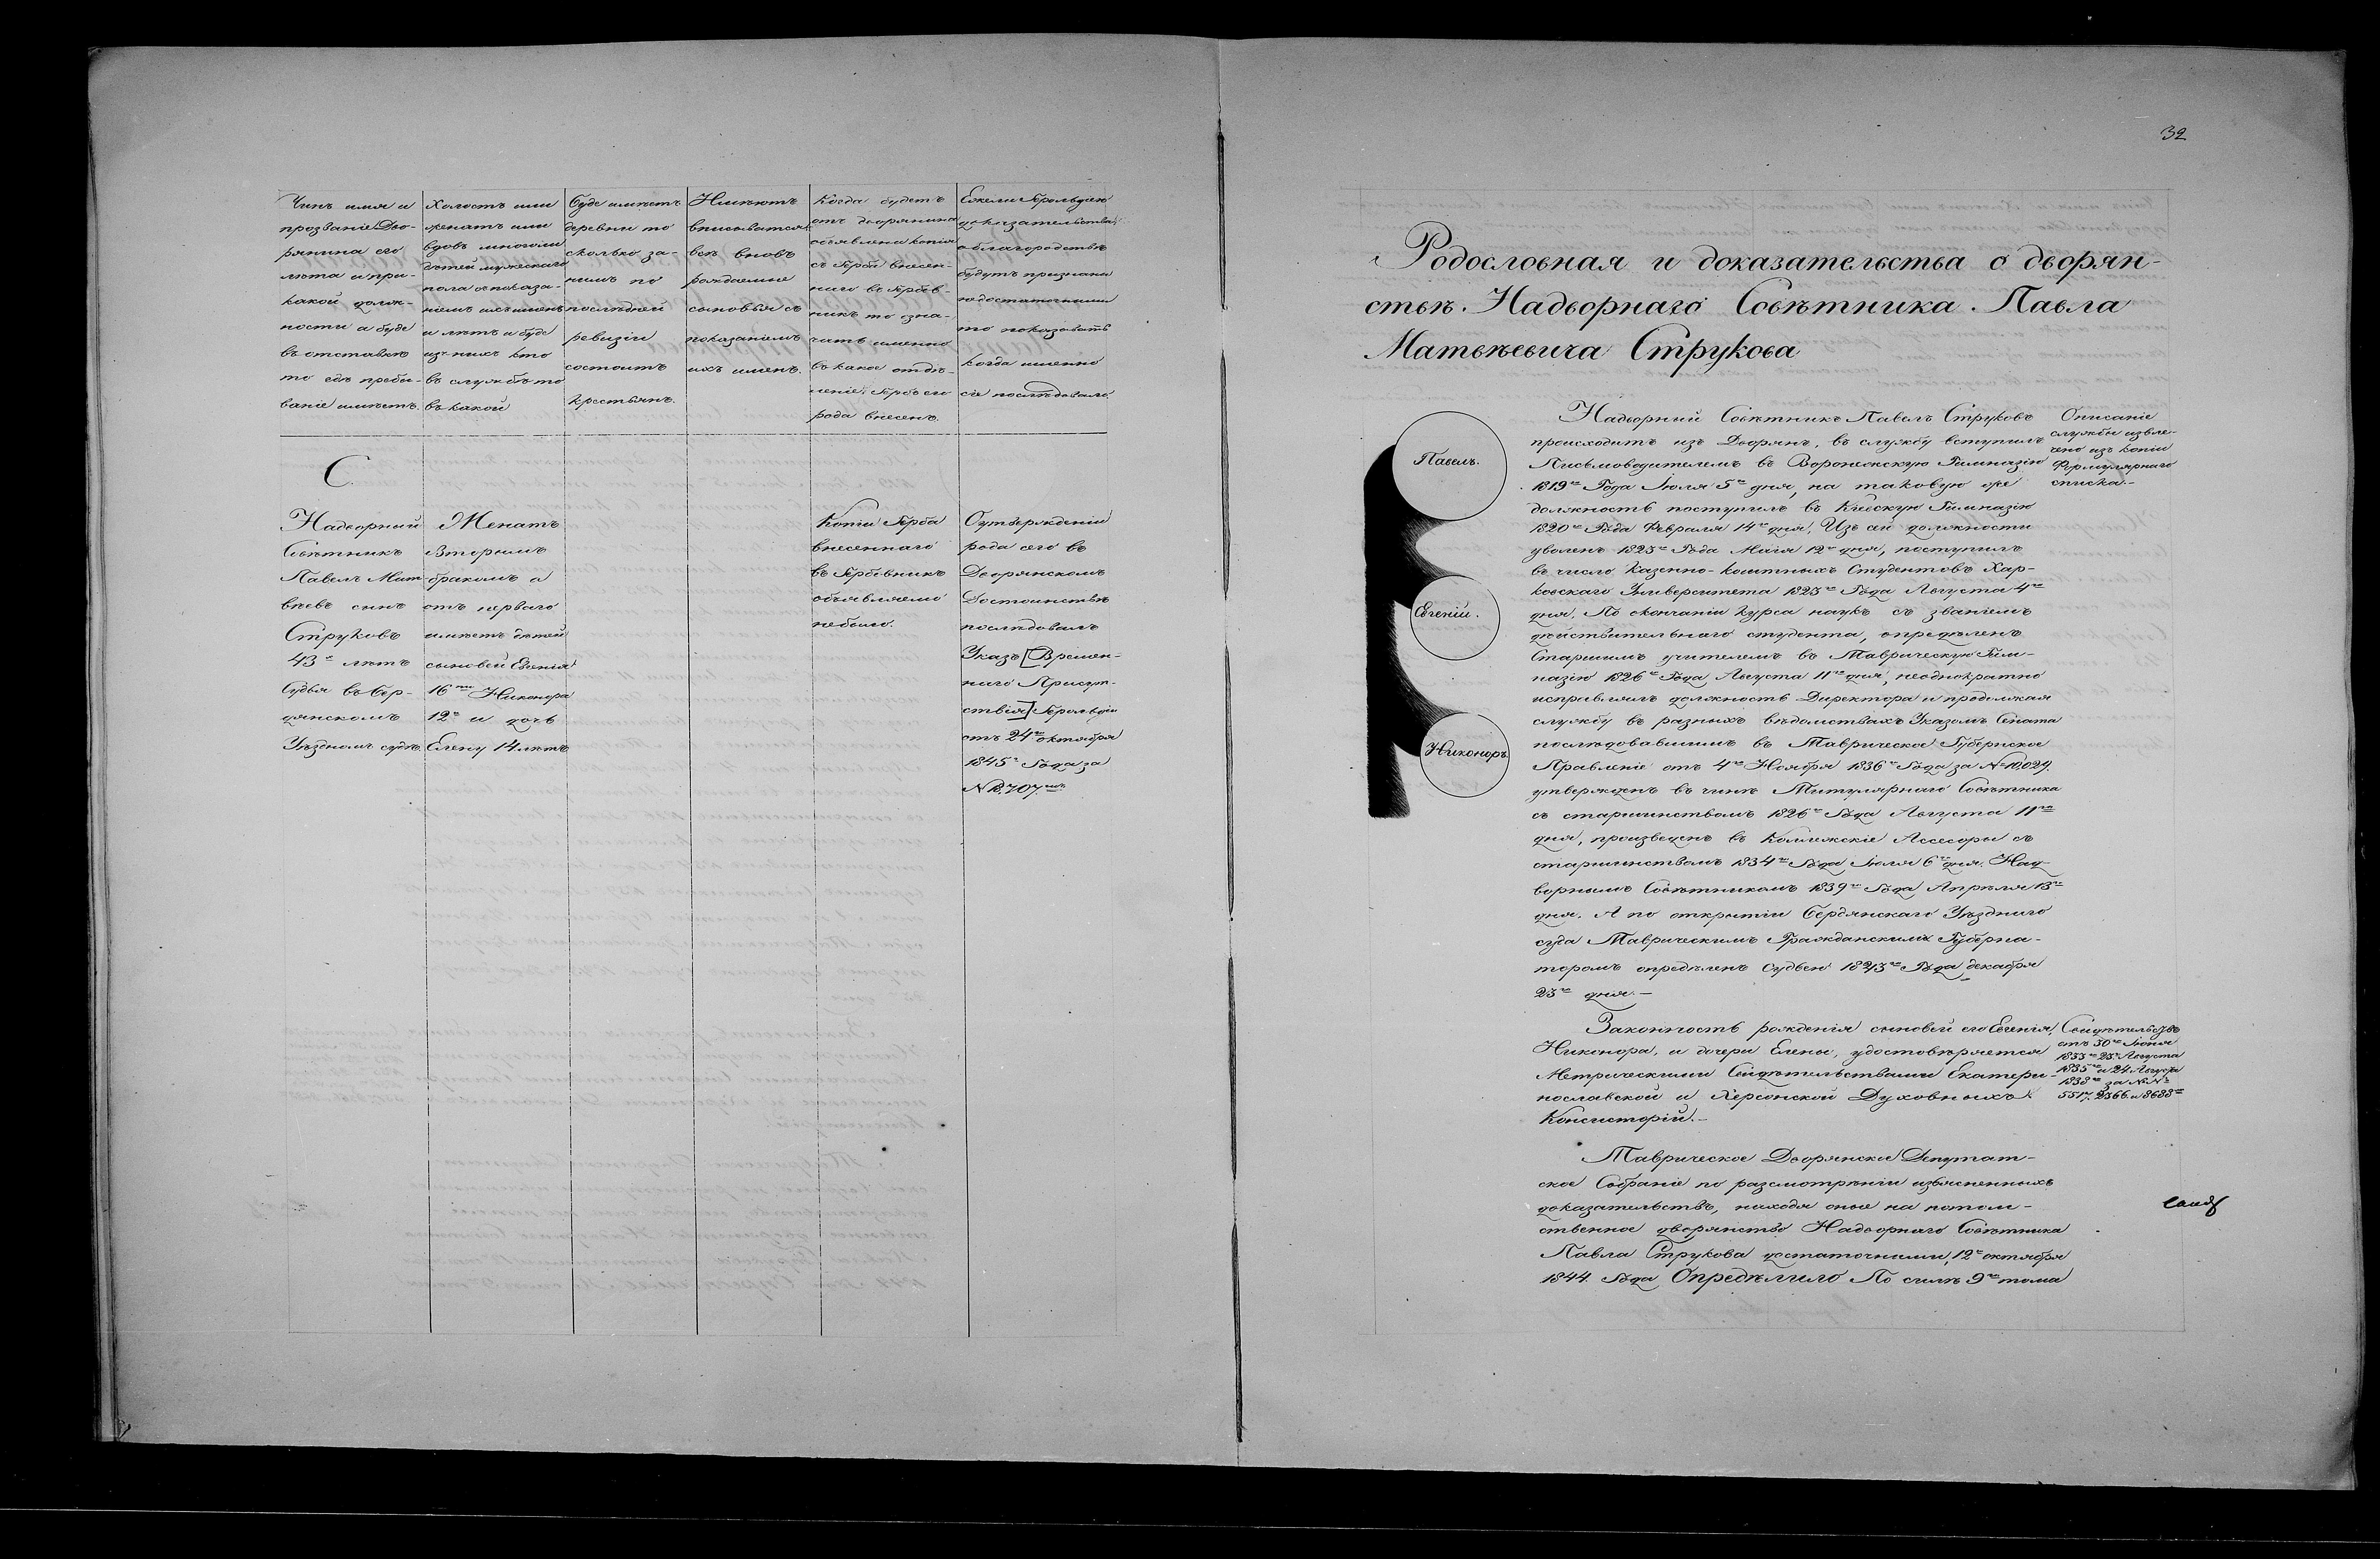 Чинъ имя и
прозваніе Дво-
рянина его
лѣта и при
какой долж-
ности а буде
въ отставкѣ
то гдѣ пребы-
ваніе имѣетъ.
Холостъ или
женатъ или
вдовъ многоли
дѣтей мужескаго
пола съ показа-
ніемъ ихъ именъ
и лѣтъ и буде
изъ нихъ кто
въ службѣ то
въ какой
Буде имѣетъ
деревни то
сколько за-
нимъ по
послѣдней
ревизіи
состоитъ
крестьянъ.
Имѣютъ
вписыватся
всѣ вновь
рождаемые
сыновья съ
показаніемъ
ихъ именъ.
Когда будетъ
отъ дворянина
объявлена копія
съ Герба внесен-
наго въ Гербов-
никъ то озна-
чать именно
въ какое отдѣ-
леніе, Гербъ его
рода внесенъ.
Ежели Герольдіею
доказательства
о благородствѣ
будутъ признаны
недостаточными
то показовать
когда именно
сіе послѣдовало.
С
Надворный
Совѣтникъ
Павелъ Мат-
вѣевъ сынъ
Струковъ
43 лѣтъ
Судья въ Бер-
дянскомъ
Уѣздномъ судѣ.
Женатъ
вторымъ
бракомъ а
отъ перваго
имѣетъ дѣтей
сыновей Евгенія
16ти Никонора
12 и дочь
Елену 14 лѣтъ
Копіи Герба
внесеннаго
въ Гербовникъ
объявляемо
небыло.
О утвержденіи
рода сего въ
Дворянскомъ
Достоинствѣ
послѣдовалъ
Указъ [Времен-
ного Присут-
ствія] Герольдіи
отъ 24го октября
1845 Года за
32
Родословная и доказательства о дворян-
ствѣ. Надворнаго Совѣтника. Павла
Матвѣевича Струкова
Павелъ.
Евгеній.
Никоноръ.
Надворный Совѣтникъ Павелъ Струковъ
происходитъ изъ Дворянъ, въ службу вступилъ
Письмоводителемъ въ Воронежскую Гимназію
1819го Года Іюля 5го дня, на таковую же
должность поступилъ въ Кіевскую Гимназію
1820го Года Февраля 14го дня, Изъ сей должности
уволенъ 1823го Года Маія 12го дня, поступилъ
въ число Казенно-коштныхъ Студентовъ Хар-
ковскаго Университета 1823го Года Августа 4го
дня. По окончаніи курса наукъ съ званіемъ
дѣйствительнаго студента, опредѣленъ
Старшимъ учителемъ въ Таврическую Гим-
назію 1826го Года Августа 11го дня, неоднократно
исправлялъ должность Директора и продолжая
службу въ разныхъ вѣдомствахъ Указомъ Сената
послѣдовавшимъ въ Таврическое Губернское
Правленіе отъ 4го Ноября 1836го Года за № 10,029.
утвержденъ въ чинѣ Титулярнаго Совѣтника
съ старшинствомъ 1826го Года Августа 11го
дня, произведенъ въ Колежскіе Ассесоры съ
старшинствомъ 1834го Года Іюля 6го дня. Над-
ворнымъ Совѣтникомъ 1839го Года Апрѣля 13го
дня. А по открытіи Бердянскаго Уѣзднаго
суда Таврическимъ Гражданскимъ Губерна-
торомъ опредѣленъ Судьею 1843го Года декабря
23го дня.-
Описаніе
службы извле-
чено изъ копіи
Формулярнаго
списка.-
Законность рожденія сыновей его Евгенія,
Никонора, и дочери Елены, удостовѣряется
Метрическими Свидѣтельствами Екатери-
нославской и Херсонской Духовныхъ
Консисторій.-
Свидѣтельство
отъ 30го Іюня
1833го 23 Августа
1835го и 24 Августа
1838го за №№
5517. 2366 и 8688
Таврическое Дворянское Депутат-
ское Собраніе по разсмотрѣніи изъясненныхъ
доказательствъ, находя оные на потом-
ственное дворянство Надворнаго Совѣтника
Павла Струкова достаточными, 12 октября
1844. Года Опредѣлило По силѣ 9го тома